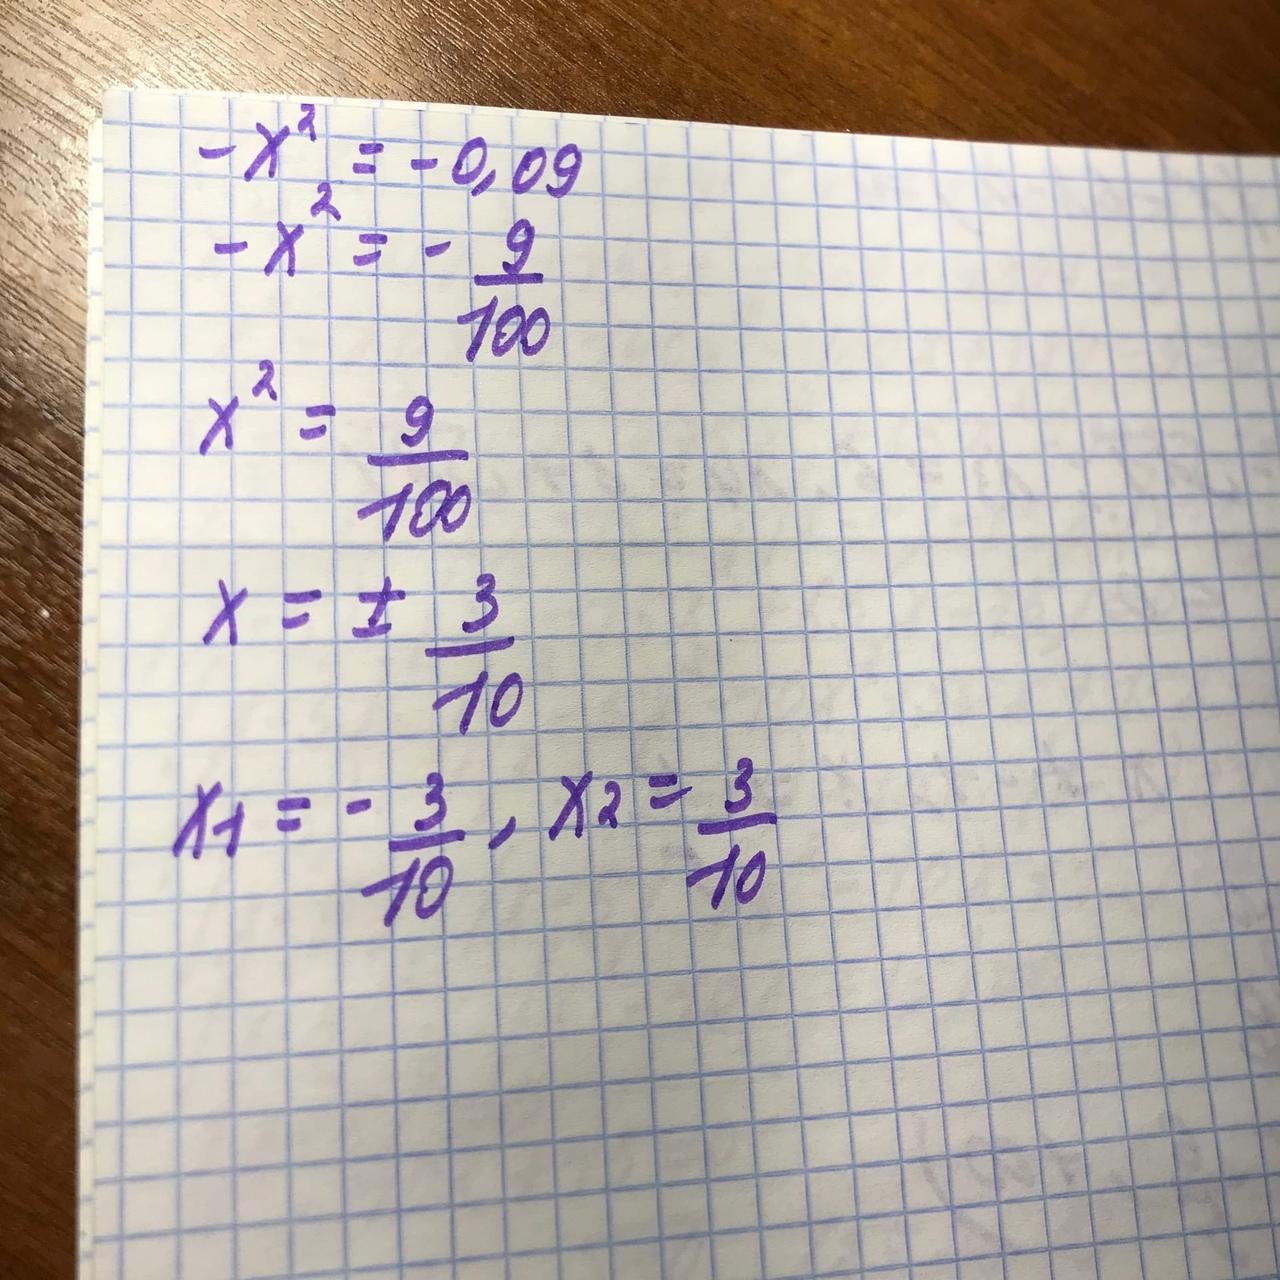 -x² = -0,09
-x² = - 9/100
x² = 9/100
x = ± 3/10
x₁ = - 3/10, x₂ = 3/10